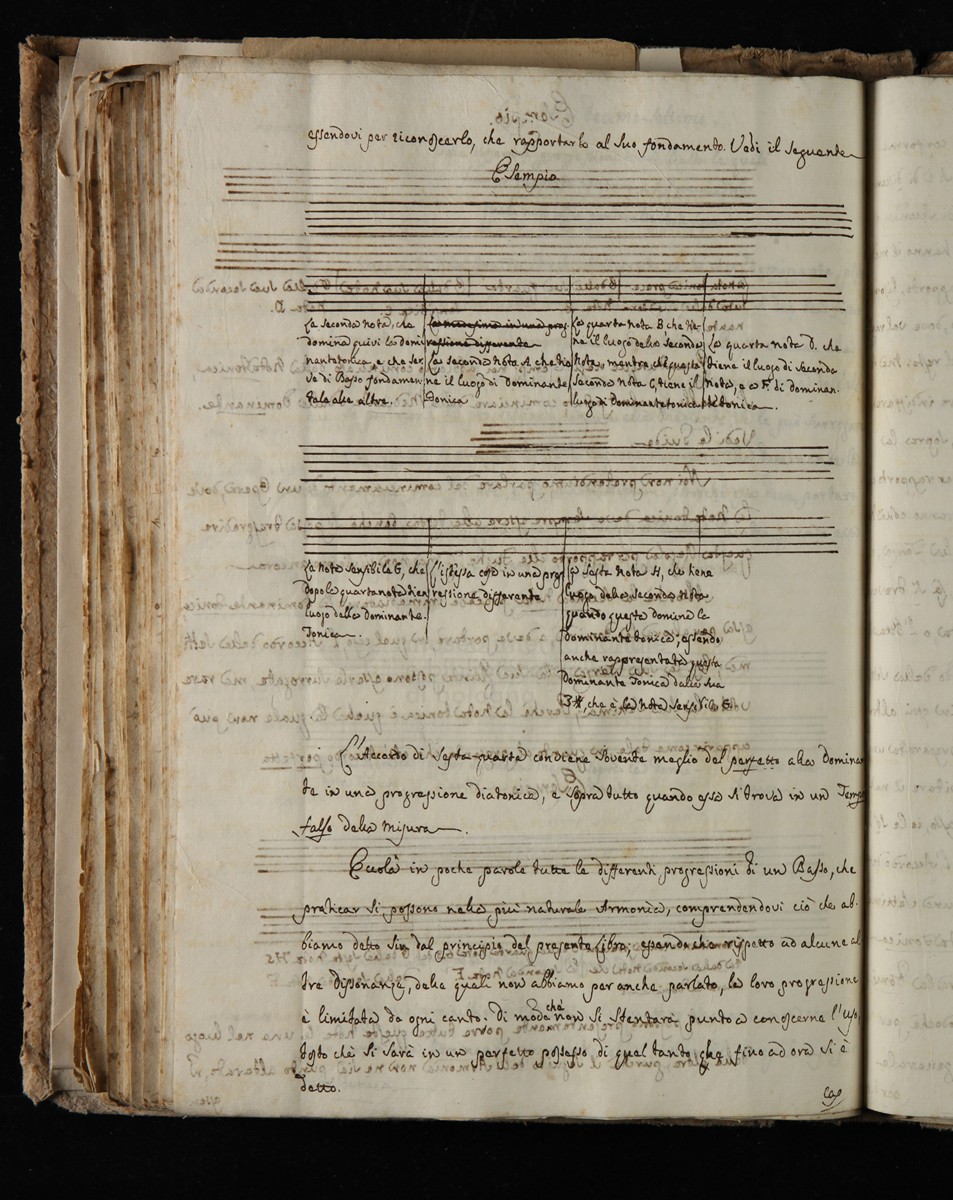 essendovi per riconoscerlo, che rapportarlo al suo fondamento. Vedi il seguente
Esempio
La seconda nota, che
domina quivi la domi
nantetonica, e che ser
ve di Basso fondamen
tale alle altre.
La medesima in una prog.
ressione differente
La seconda nota A che tie
ne il luogo di Dominante
Tonica
La quarta nota B, che tie-
ne il luogo della seconda
Nota, mentre che questa
seconda nota C, tiene il
luogo di Dominantetonica
La quarta nota D, che
tiene il luogo di seconda
Nota, e F. di Dominan.
te tonica.
La nota sensibile G, che
dopo la quarta nota tien
luogo della Dominante.
Tonica.
L'istessa cosa in una prog
ressione differente
La sesta nota H, che tiene
luogo della seconda Nota
quando questa domina la
Dominante tonica; essendo
anche rappresentata questa
Dominante Tonica dalla sua
3#, che è la nota sensibile G.
L'Accordo di Sesta quarta conviene sovente meglio del perfetto alla Dominan
te in una progressione diatonica, e sopra tutto quando essa si trova in un Tempo
falso della misura.
Eccola in poche parole tutte le differenti progressioni di un Basso, che
praticar si possono nella più naturale Armonia, comprendendovi ciò che ab-
biamo detto sin dal principio del presente Libro; essendo che rispetto ad alcune al
tre dissonanze, delle quali non abbiamo per anche parlato, la loro progressione
è limitata da ogni canto. Di moda che non si stentarà punto a conoscerne l'uso,
tosto che si sarà in un perfetto possesso di quel tanto che fino ad ora si è
detto.
Cap